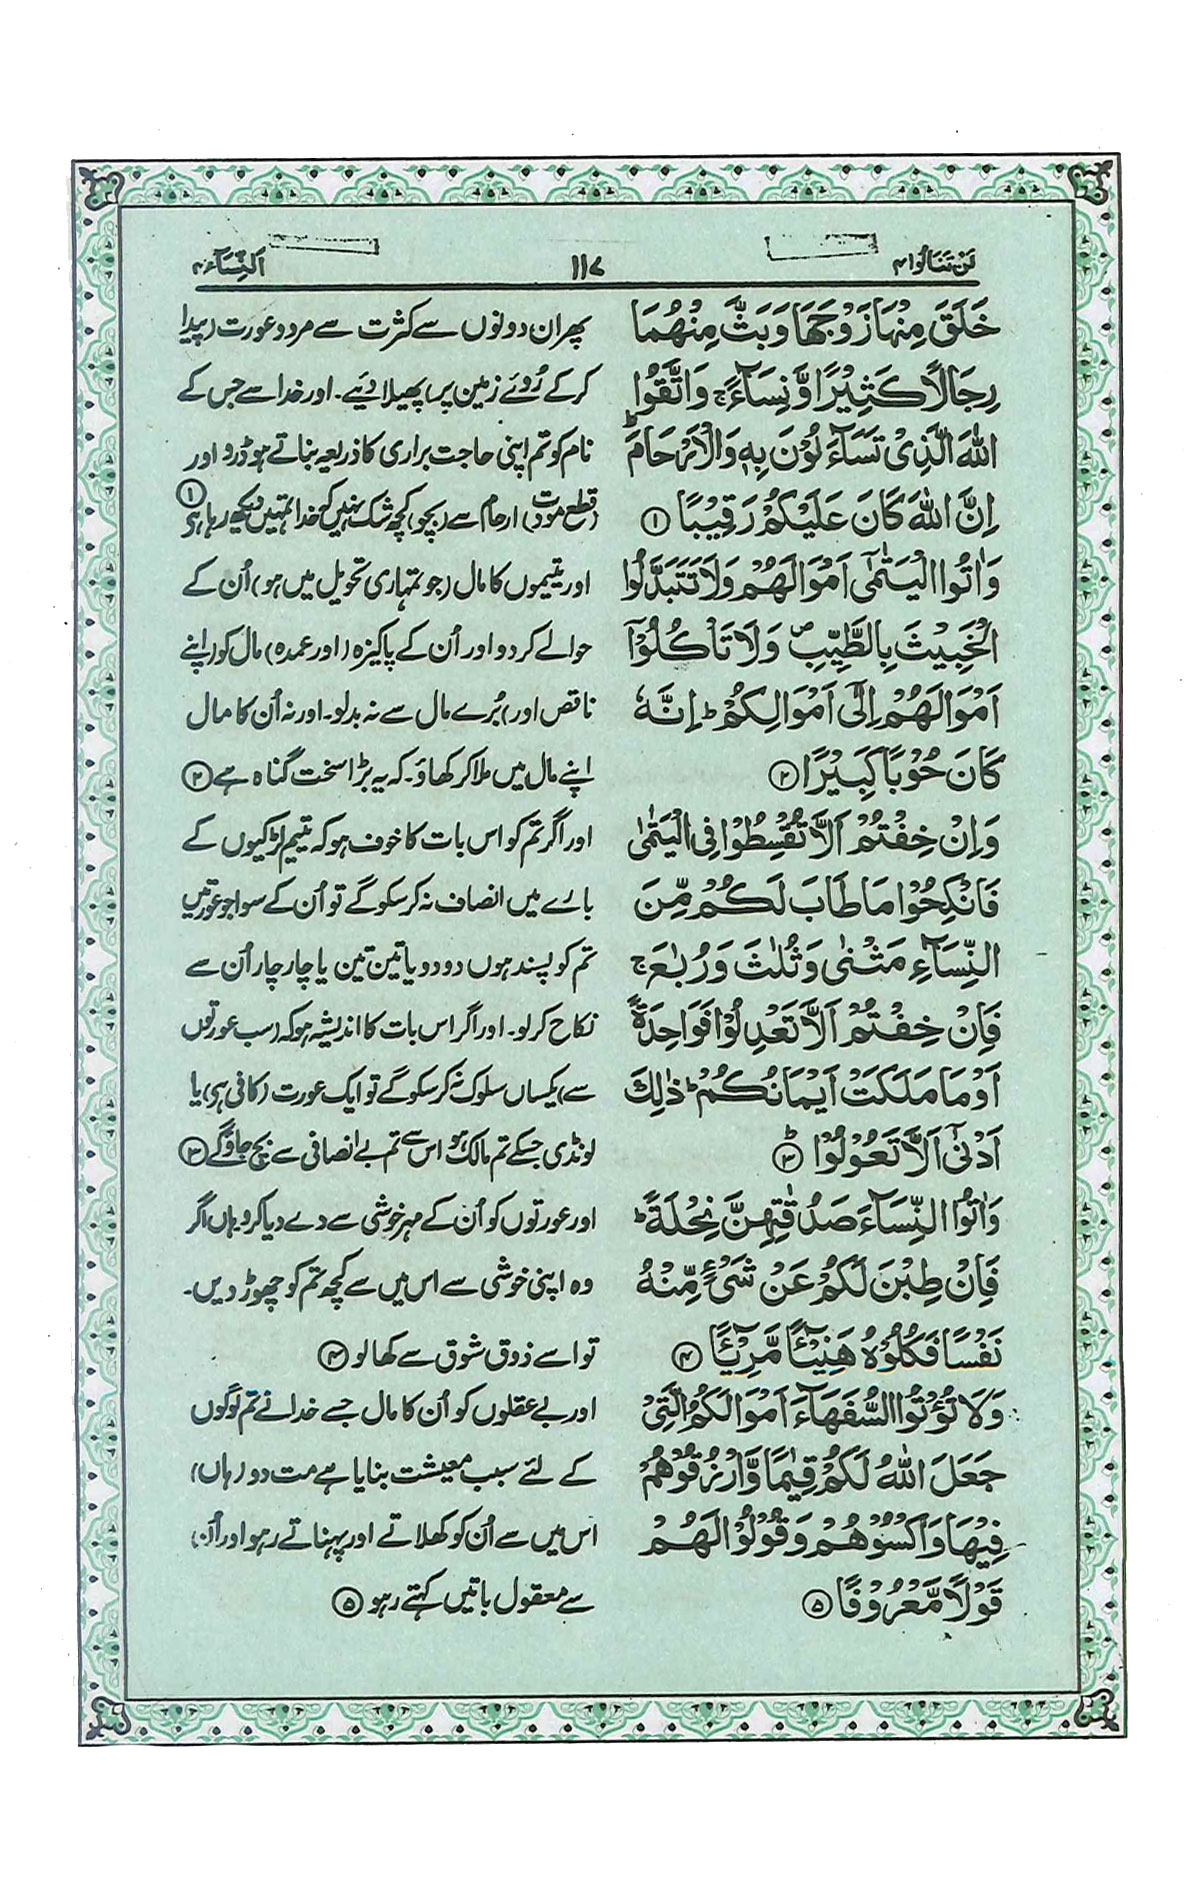 لَنْ تَنَالُوا ۴
۱۱۷
اَلنِّسَآء ۴
خَلَقَ مِنْهَا زَوْجَهَا وَبَثَّ مِنْهُمَا
رِجَالًا كَثِيْرًا وَّ نِسَآءً ۚ وَاتَّقُوا
اللّٰهَ الَّذِىْ تَسَآءَلُوْنَ بِهٖ وَالْاَرْحَامَ ؕ
اِنَّ اللّٰهَ كَانَ عَلَيْكُمْ رَقِيْبًا ۱
وَاٰتُوا الْيَتٰمٰٓى اَمْوَالَهُمْ وَلَا تَتَبَدَّلُوا
الْخَبِيْثَ بِالطَّيِّبِ ۪ وَلَا تَاْكُلُوْٓا
اَمْوَالَهُمْ اِلٰٓى اَمْوَالِكُمْ ؕ اِنَّهٗ
كَانَ حُوْبًا كَبِيْرًا ۲
وَاِنْ خِفْتُمْ اَلَّا تُقْسِطُوْا فِى الْيَتٰمٰى
فَانْكِحُوْا مَا طَابَ لَكُمْ مِّنَ
النِّسَآءِ مَثْنٰى وَثُلٰثَ وَرُبٰعَ ۚ
فَاِنْ خِفْتُمْ اَلَّا تَعْدِلُوْا فَوَاحِدَةً
اَوْ مَا مَلَكَتْ اَيْمَانُكُمْ ؕ ذٰلِكَ
اَدْنٰٓى اَلَّا تَعُوْلُوْا ؕ ۳
وَاٰتُوا النِّسَآءَ صَدُقٰتِهِنَّ نِحْلَةً ؕ
فَاِنْ طِبْنَ لَكُمْ عَنْ شَىْءٍ مِّنْهُ
نَفْسًا فَكُلُوْهُ هَنِيْٓــًٔا مَّرِيْٓــًٔا ۴
وَلَا تُؤْتُوا السُّفَهَآءَ اَمْوَالَكُمُ الَّتِىْ
جَعَلَ اللّٰهُ لَكُمْ قِيٰمًا وَّارْزُقُوْهُمْ
فِيْهَا وَاكْسُوْهُمْ وَقُوْلُوْا لَهُمْ
قَوْلًا مَّعْرُوْفًا ۵
پھر ان دونوں سے کثرت سے مرد و عورت (پیدا
کرکے رُوئے زمین پر) پھیلا دئیے۔ اور خدا سے جس کے
نام کو تم اپنی حاجت براری کا ذریعہ بناتے ہو ڈرو اور
(قطع مودت) ارحام سے (بچو) کچھ شک نہیں کہ خدا تمہیں دیکھ رہا ہی ۱
اور یتیموں کا مال (جو تمہاری تحویل میں ہو) اُن کے
حوالے کر دو اور اُن کے پاکیزہ (اور عمدہ) مال کو (اپنے
ناقص اور) بُرے مال سے نہ بدلو۔ اور نہ اُن کا مال
اپنے مال میں ملا کر کھاؤ۔ کہ یہ بڑا سخت گناہ ہے ۲
اور اگر تم کو اس بات کا خوف ہو کہ یتیم لڑکیوں کے
بارے میں انصاف نہ کر سکو گے تو اُن کے سوا جو عورتیں
تم کو پسند ہوں دو دو یا تین تین یا چار چار اُن سے
نکاح کر لو۔ اور اگر اس بات کا اندیشہ ہو کہ (سب عورتوں
سے) یکساں سلوک نہ کر سکو گے تو ایک عورت (کافی ہی) یا
لونڈی جسکے تم مالک ہو اس سے تم بے انصافی سے بچ جاؤگے ۳
اور عورتوں کو اُن کے مہر خوشی سے دے دیا کرو ہاں اگر
وہ اپنی خوشی سے اس میں سے کچھ تم کو چھوڑ دیں۔
تو اسے ذوق شوق سے کھالو ۴
اور بے عقلوں کو اُن کا مال جسے خدا نے تم لوگوں
کے لئے سبب معیشت بنایا ہے مت دو (ہاں)
اس میں سے اُن کو کھلاتے اور پہناتے رہو اور اُن
سے معقول باتیں کہتے رہو ۵